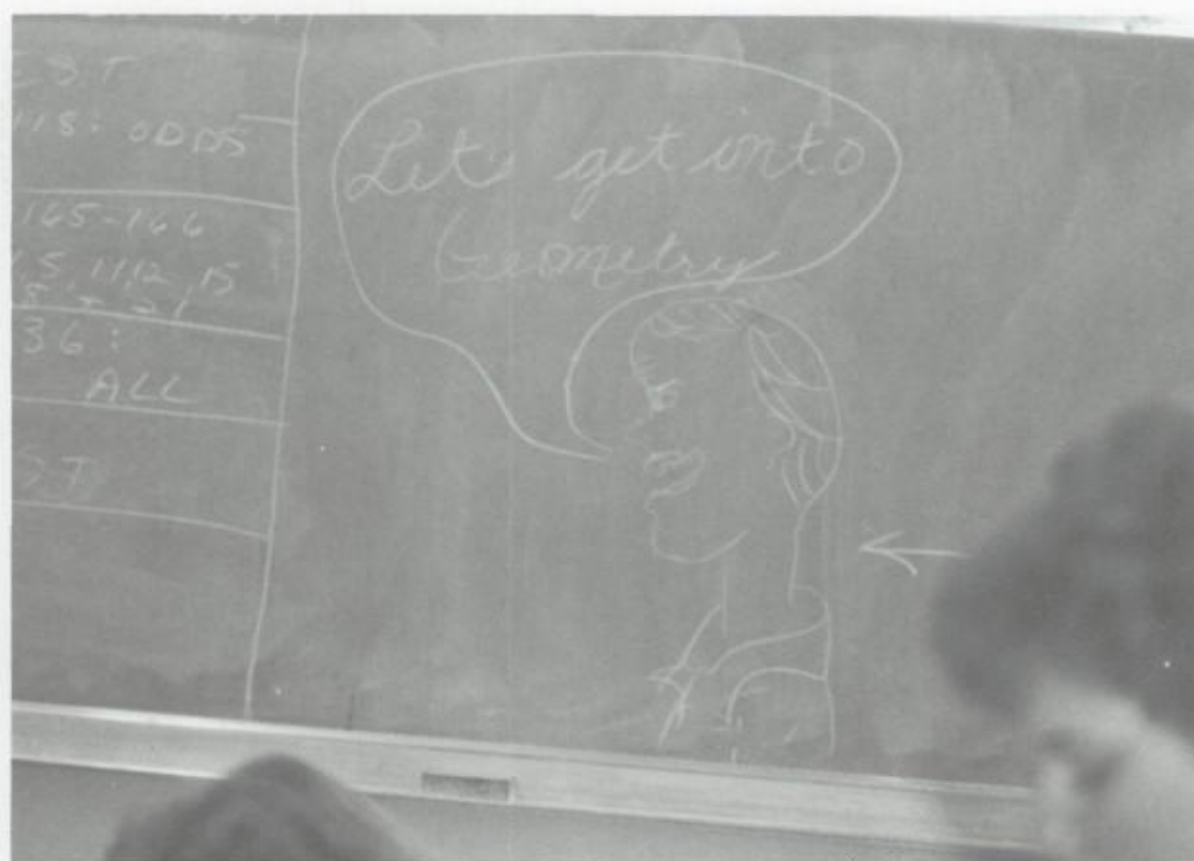 115: ODDS
165-166
5, 11, 12, 15
36:
ALL
Let's get into
Geometry